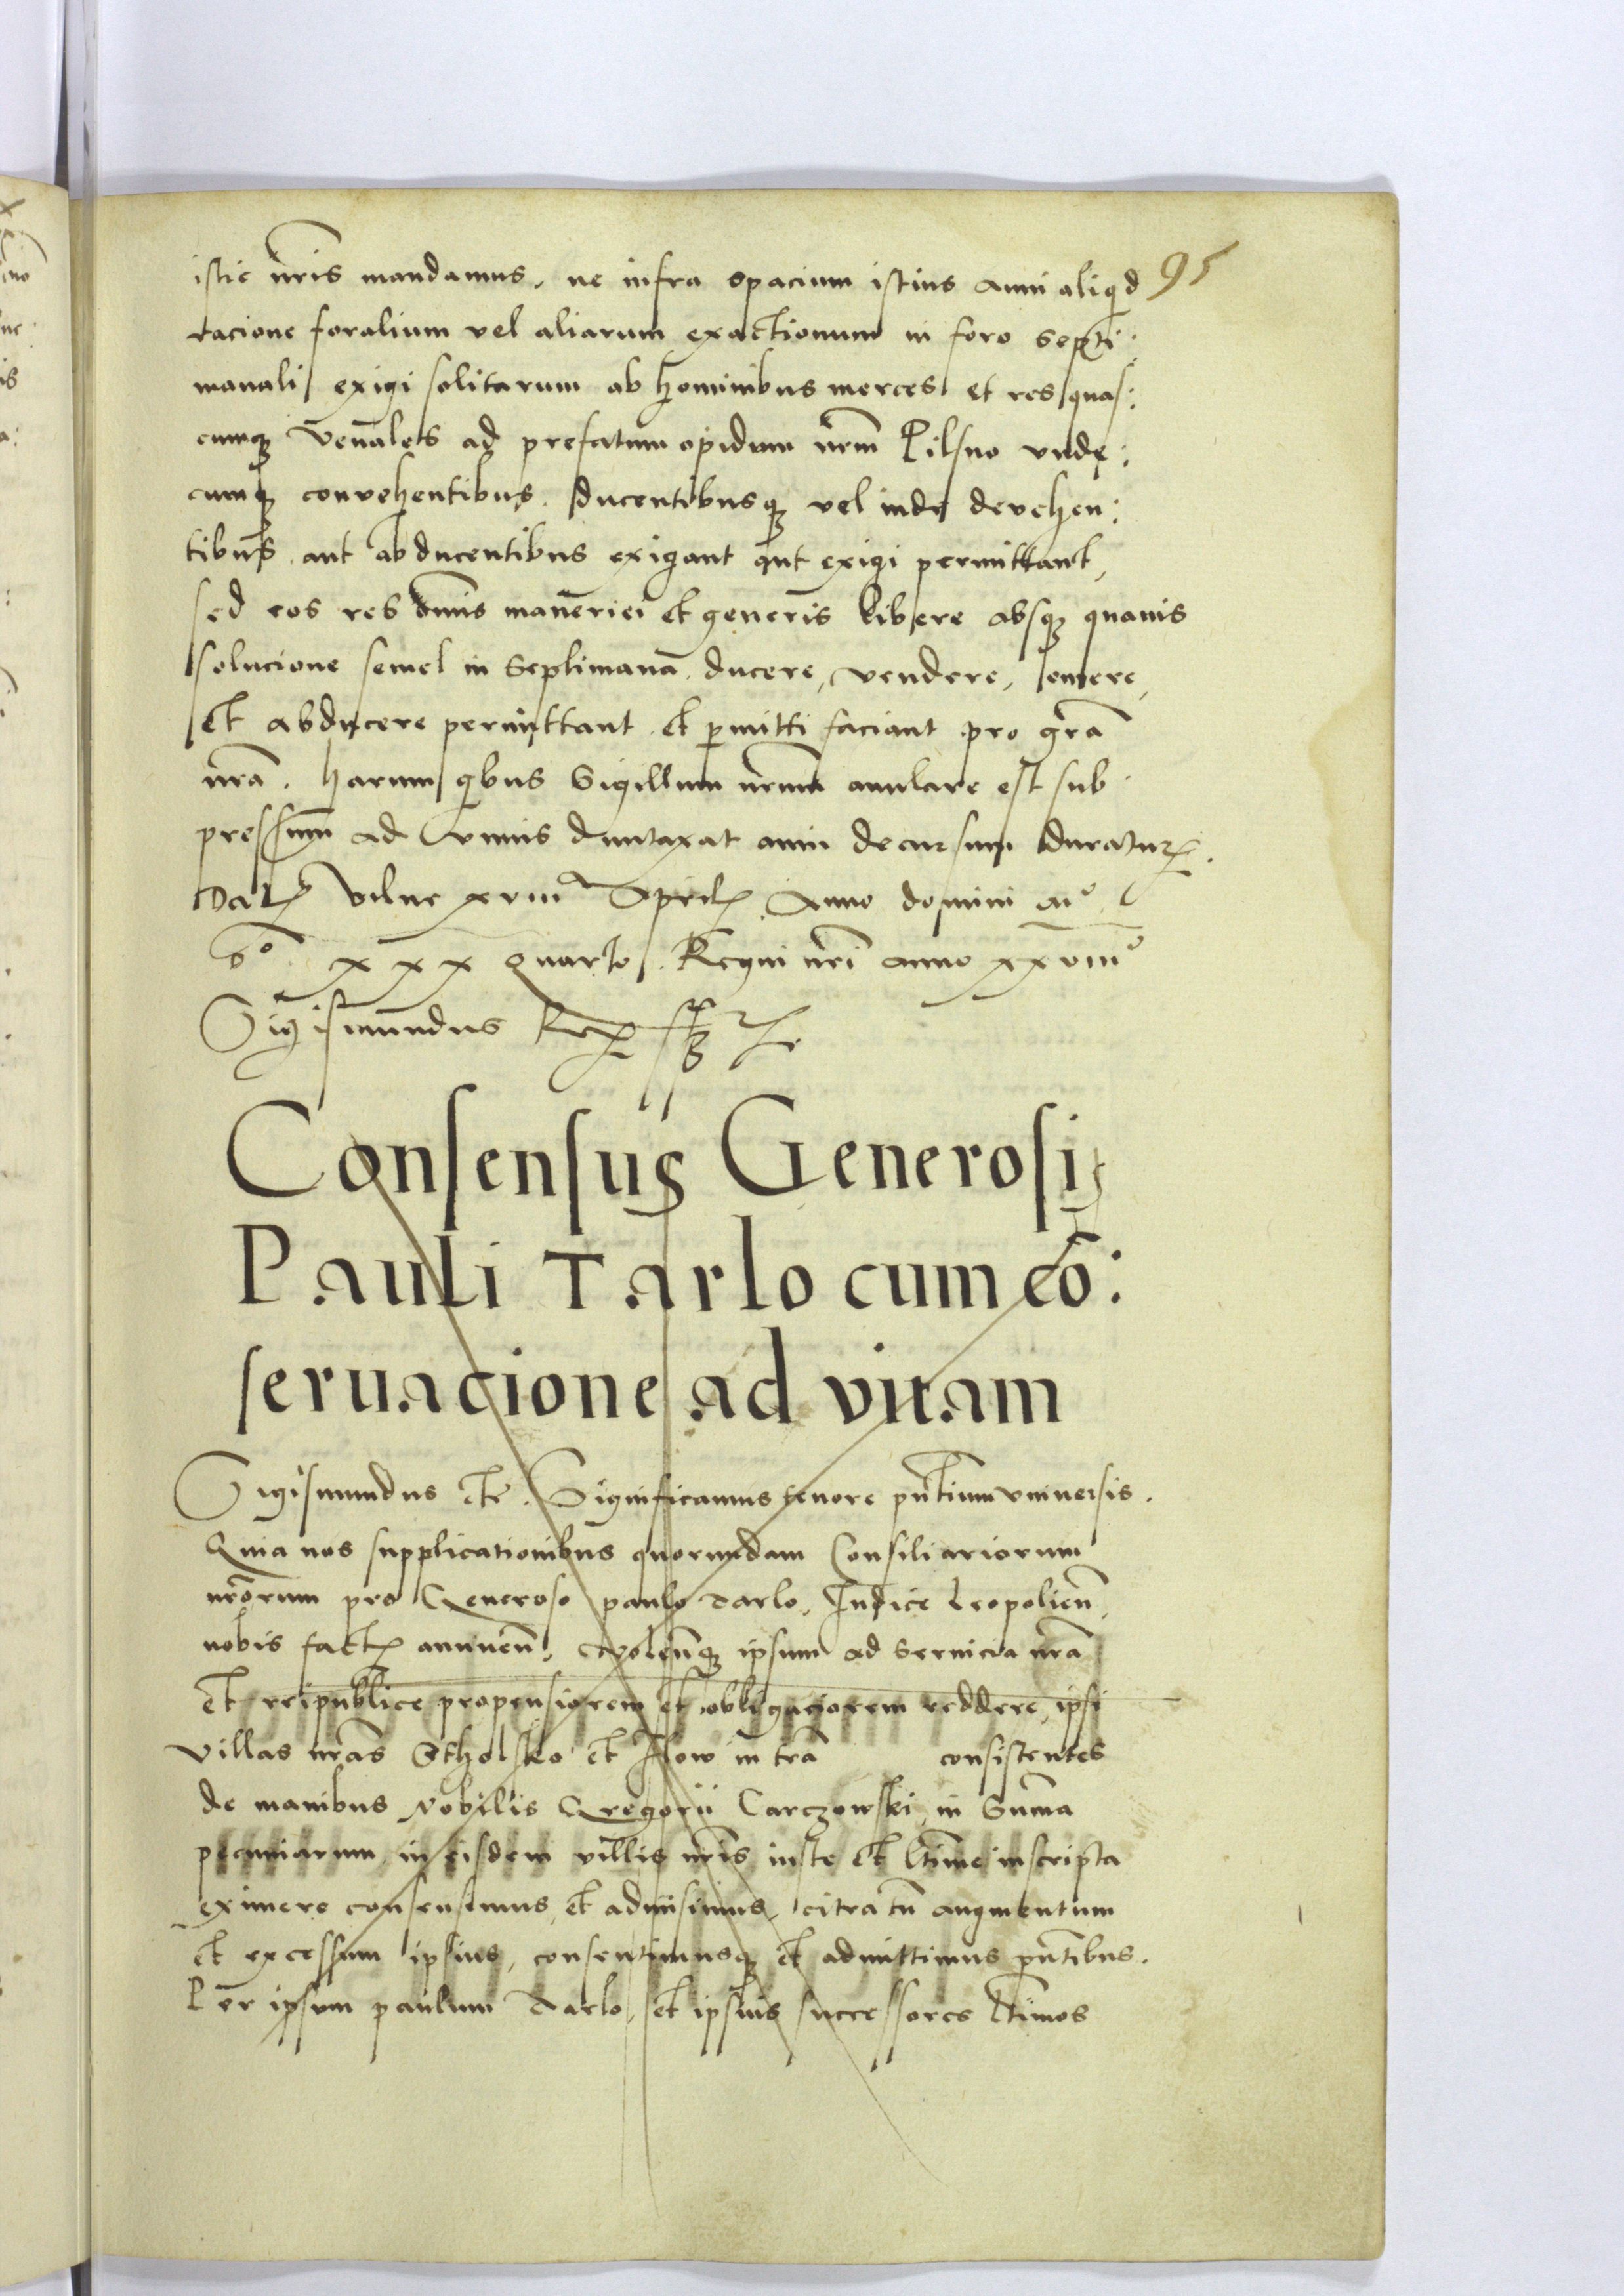 95
istic nris mandamus, ne infra spacium istius anni aliqd
racione foralium vel aliarum exactionum in foro septi:
manali exigi solitarum ab hominibus merces et res quas:
cumq venales ad prefatum opidum nrm Pilsno unde:
cumq convehentibus. ducentibusq vel inde devehen:
tibus aut abducentibus exigant aut exigi permittant,
sed eos res omnis maneriei et generis libere absq quavis
solucione semel in Septimana ducere, vendere, emere,
et abducere permittant et pmitti faciant pro gra
nra. harum qbus Sigillum nrum anulare est sub
pressum ad unius duntaxat anni decursum duratur.
Dat Vilne xviii April Anno domini Mo
Do xxx quarto. Regni nri anno xxviiio
Sigismundus Rex sspt
Consensus Generosi
Pauli Tarlo cum co:
seruacione ad vitam
Sigismundus etc. Significamus tenore pntium universis.
Quia nos supplicationibus quorundam Consiliariorum
nrorum pro Generoso paulo Tarlo, Iudice Leopolien,
nobis fact annuen. Volenq ipsum ad Servicia nra
et reipublice propensiorem et obligaciorem reddere, ipsi
villas nras Stholsko et Ilow in tra consistentes
de manibus Nobilis Gregorii Carczowski, in Summa
pecuniarum, in eisdem villis nris iuste et ltime inscripta
eximere consensimus, et admisimus, citra tn augmentum
et excessum ipsius, consentimusq et admittimus pntibus.
Per ipsum paulum Tarlo, et ipsius successores ltimos